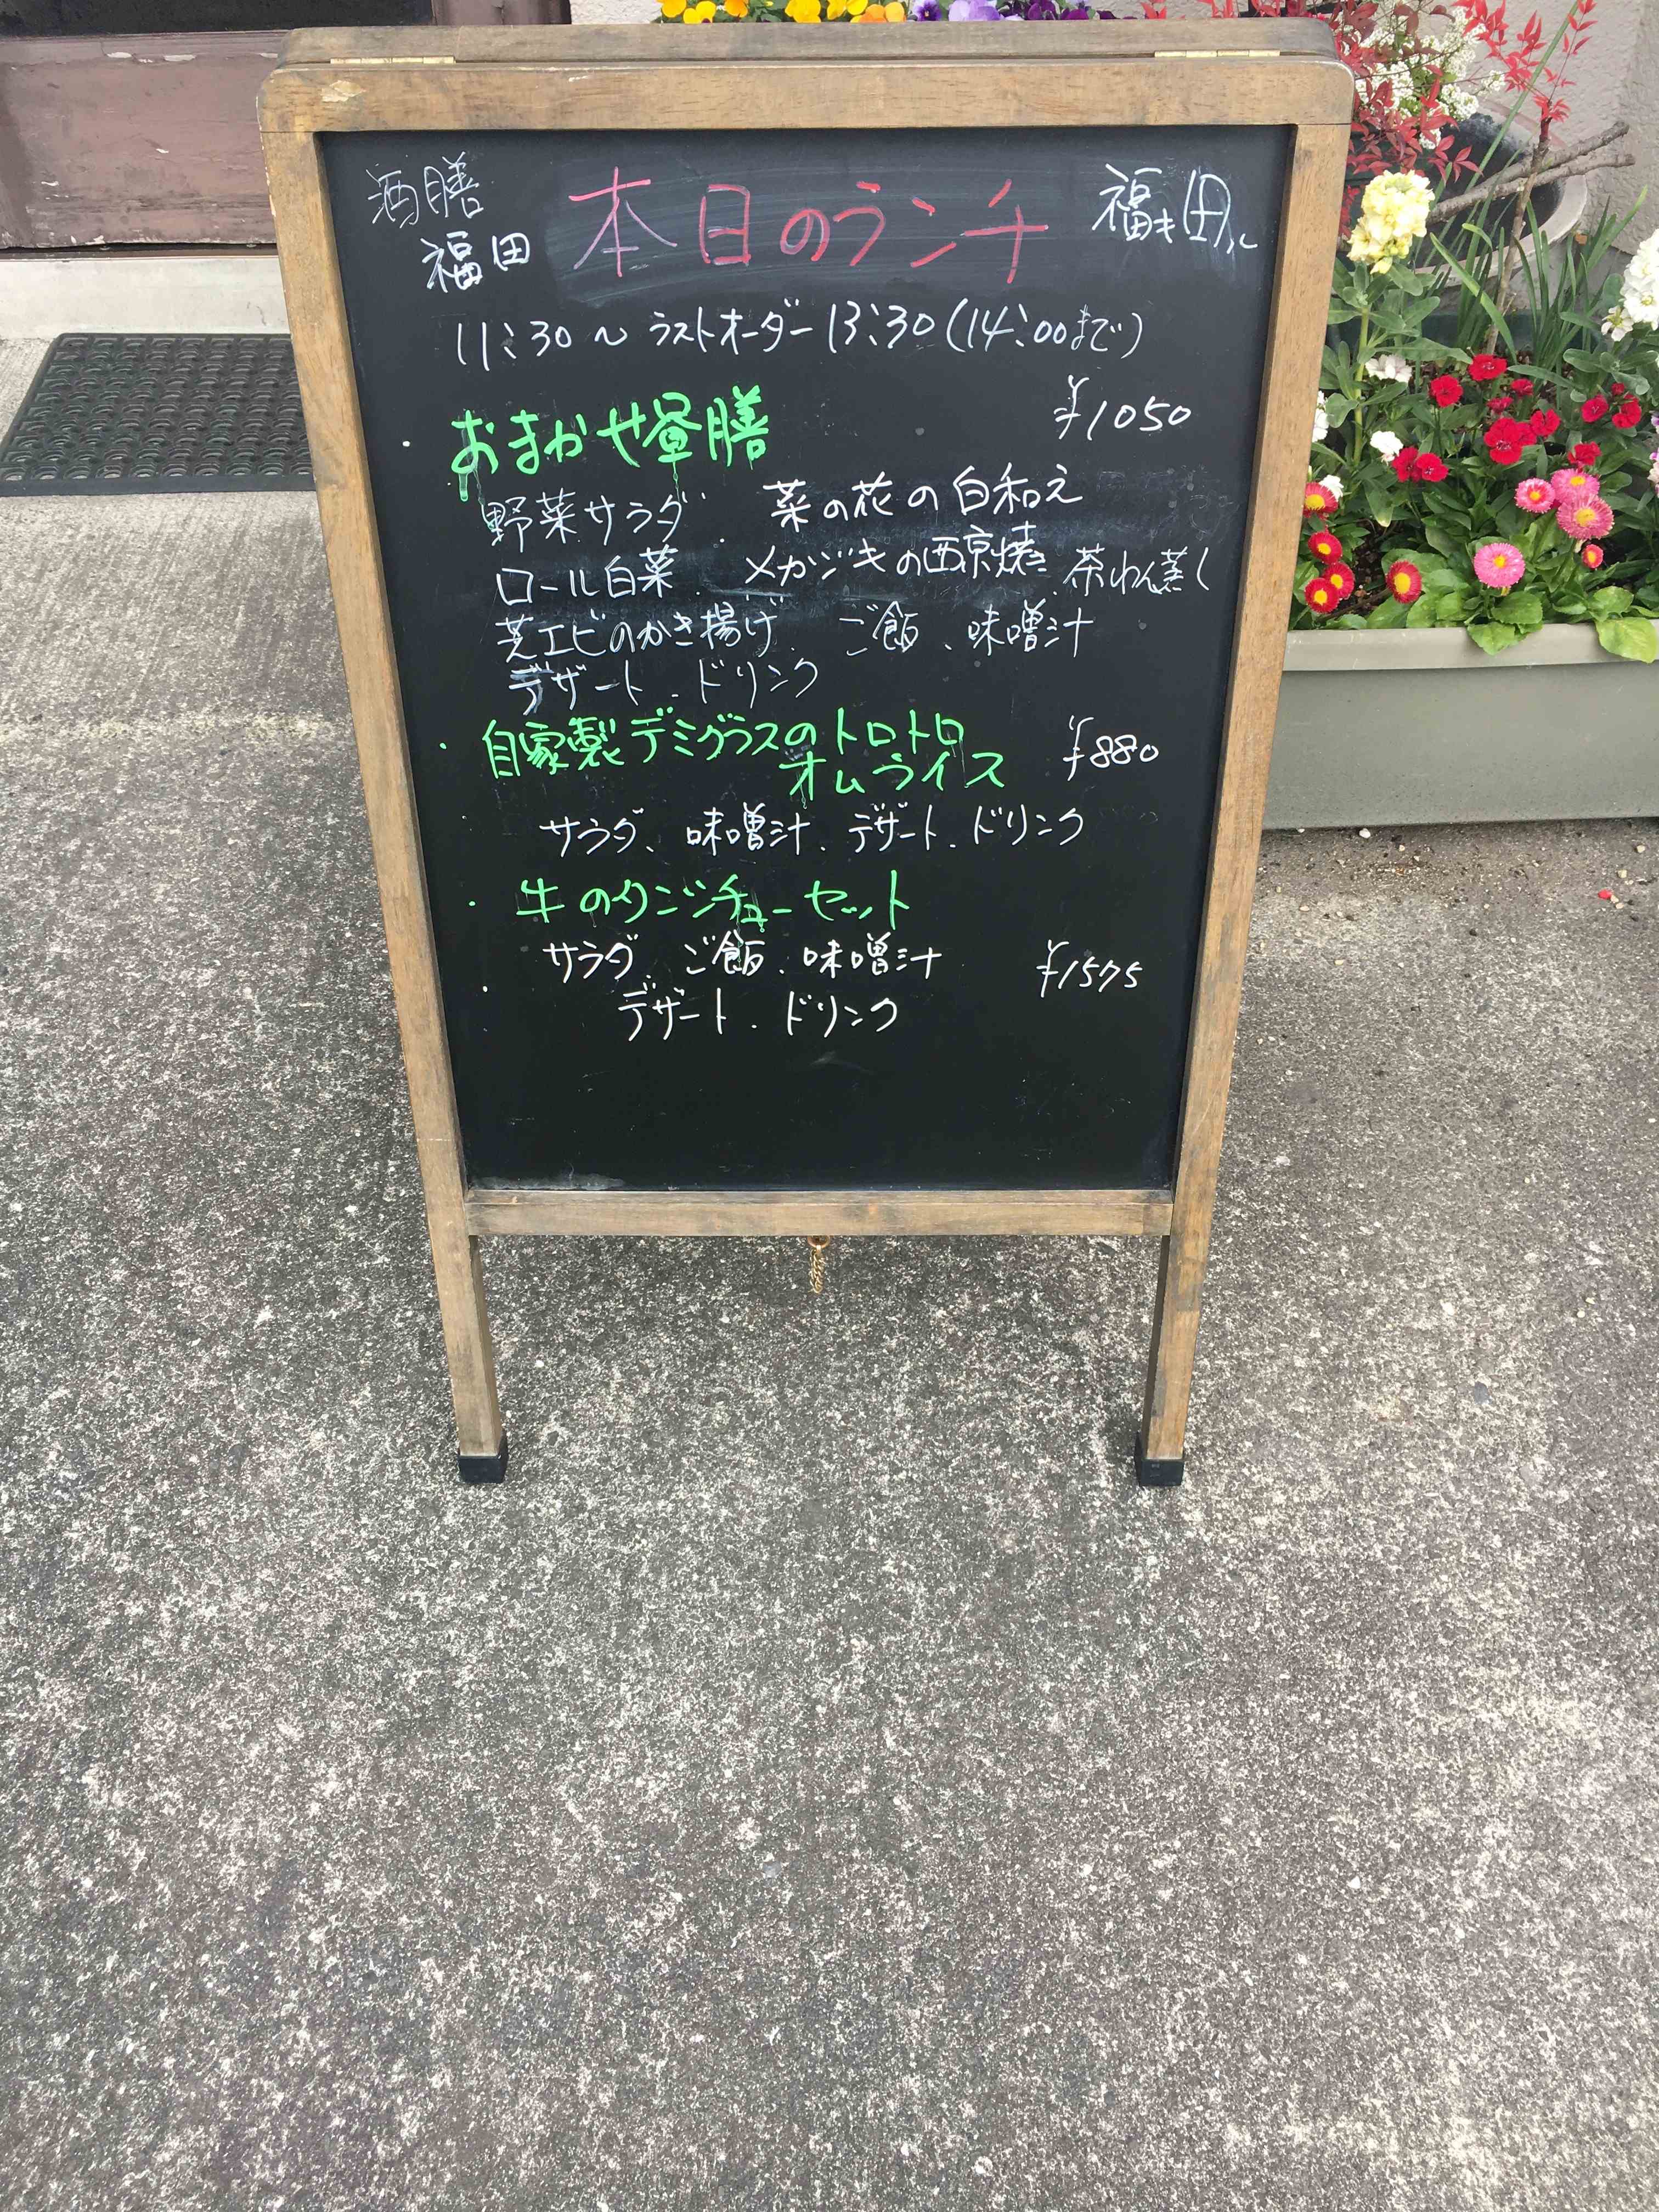 酒膳
福田
本日のランチ
11:30〜ラストオーダー13:30(14:00まで)
・おまかせ昼膳 ¥1050
野菜サラダ、菜の花の白和え
ロール白菜、メカジキの西京焼、茶わん蒸し
芝エビのかき揚げ、ご飯、味噌汁
デザート、ドリンク
・自家製デミグラスのトロトロ
オムライス ¥880
サラダ、味噌汁、デザート、ドリンク
・牛のタンシチューセット
サラダ、ご飯、味噌汁 ¥1575
デザート、ドリンク